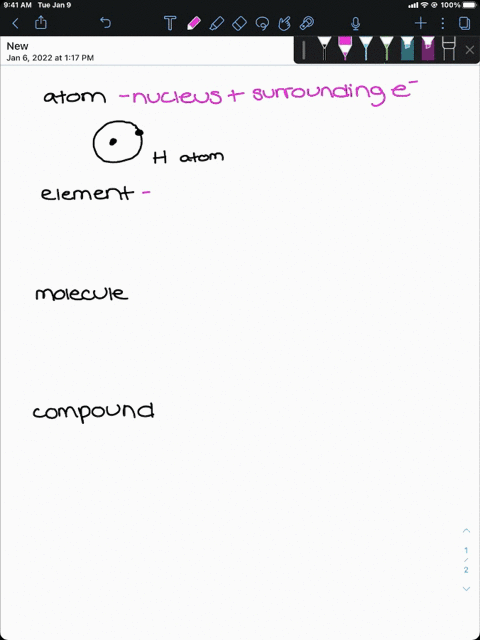 9:41 AM Tue Jan 9
100%
New
Jan 6, 2022 at 1:17 PM
atom - nucleus + surrounding e⁻
H atom
element -
molecule
compound
1
2